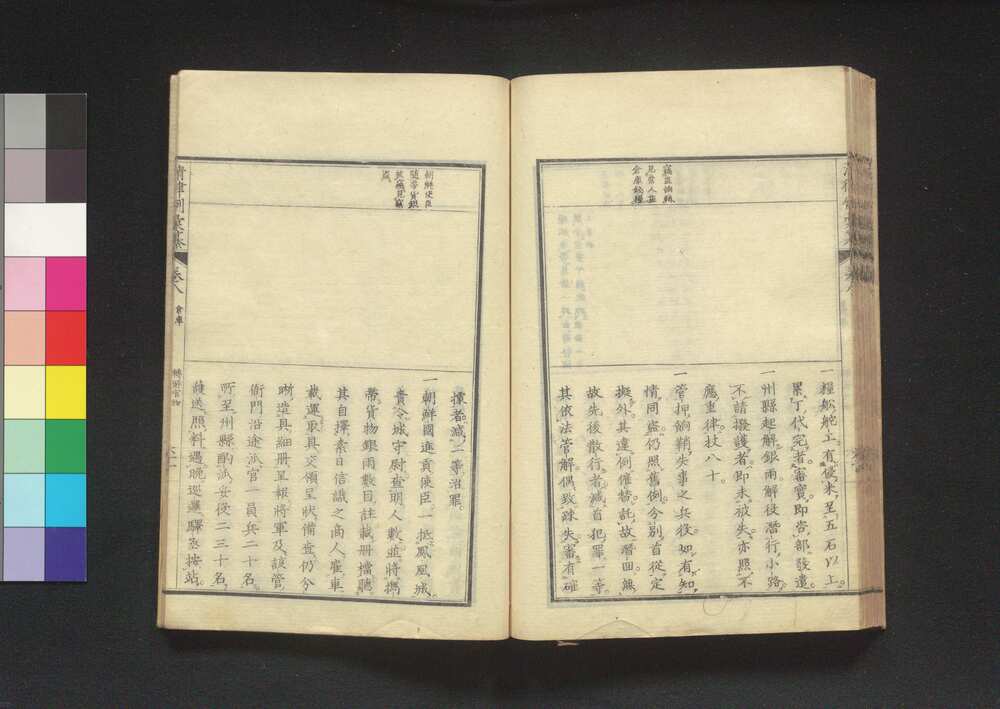 一糧船舵工有侵米至五石以上
累丁代完者審實即咨部發遣
一州縣起解銀兩解役潛行小路
不請撥護者即未被失亦照不
應重律杖八十
一管押餉鞘失事之兵役如有知
情同盜仍照舊例分別首從定
擬外其違例僱替託故潛回無
故先後散行者減首犯罪一等
其依法管解偶致疎失審有確
據者減二等治罪
一朝鮮國進貢使臣一抵鳳凰城
責令城守尉查明人數並將攜
帶貨物銀兩數目註載冊檔聽
其自擇素日信識之商人雇車
載運取具交領呈狀備查仍分
晰造具細冊呈報將軍及該管
衙門沿途派官一員兵二十名
所至州縣酌派妥役二三十名
護送照料遇晚巡邏驛丞按站
朝鮮使臣
隨帶貨銀
被竊見竊
盜
清律例彙纂
卷八
倉庫
轉解官物